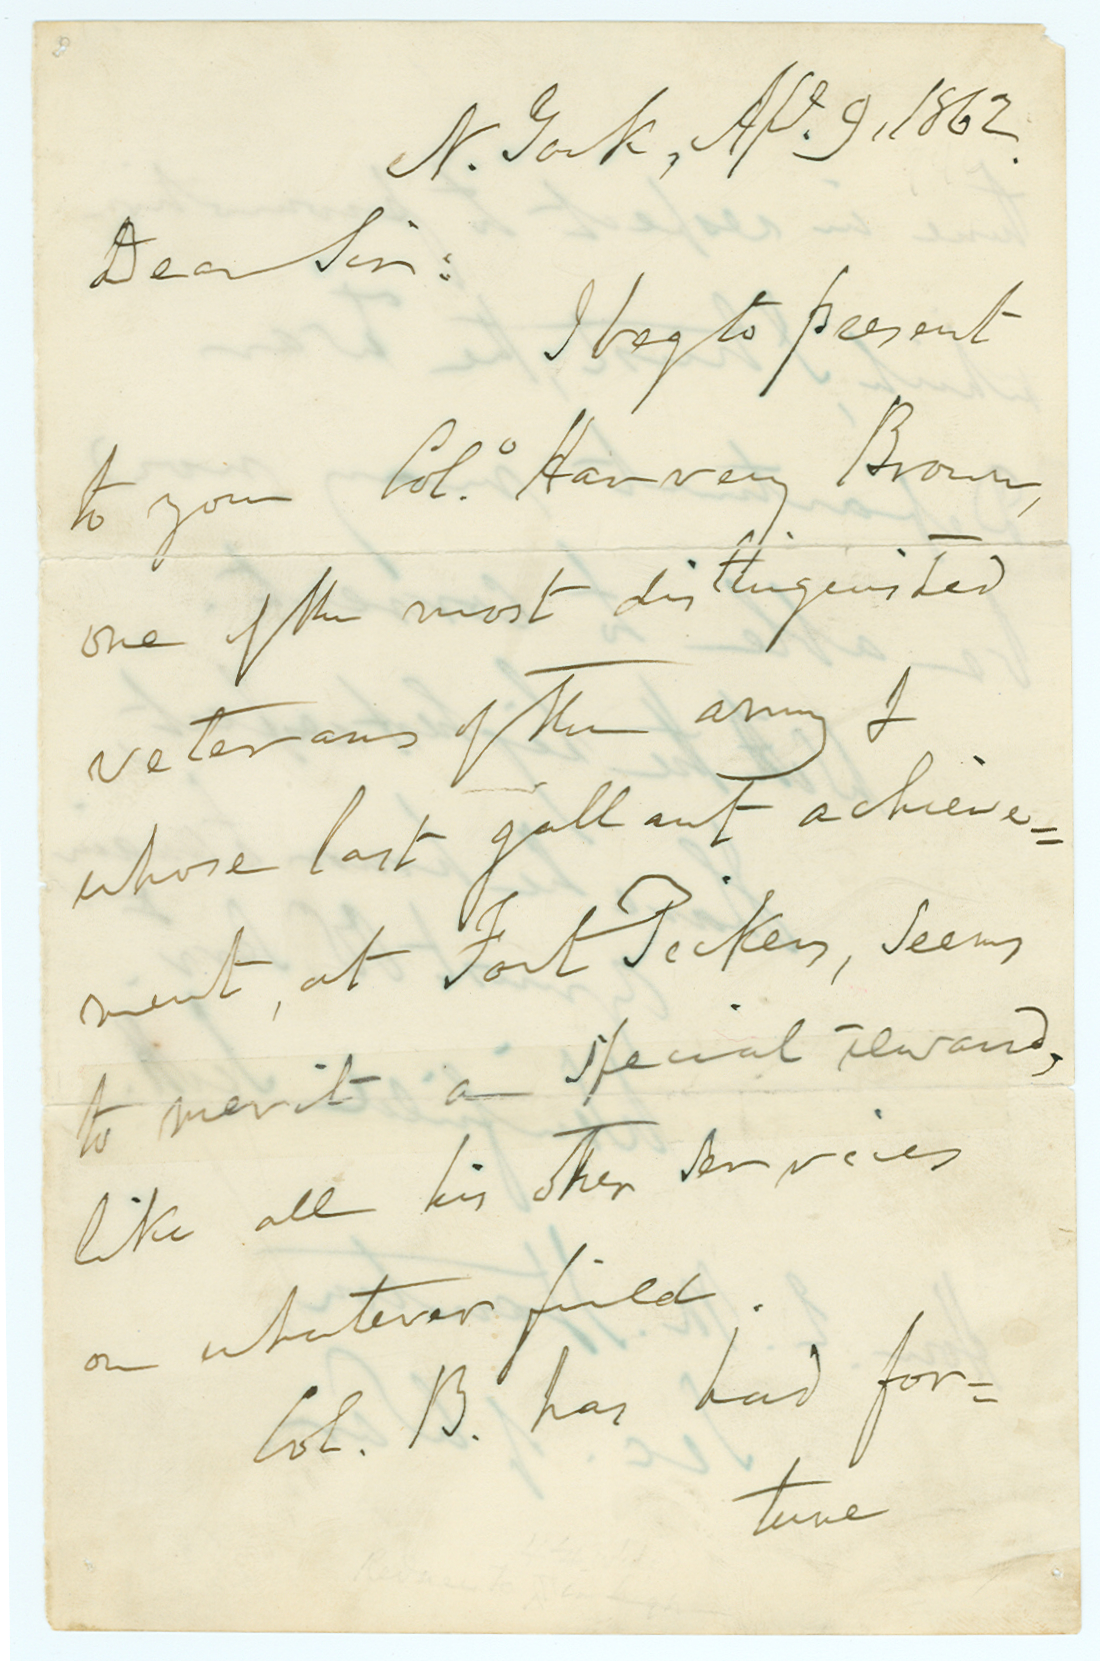 N. York, Apl. 9, 1862.
Dear Sir:
I beg to present
to you Col.º Harvey Brown,
one of the most distinguished
veterans of the army &
whose last gallant achieve=
ment, at Fort Pickens, seems
to merit a special reward,
like all his other services
on whatever field.
Col. B. has had for=
tune